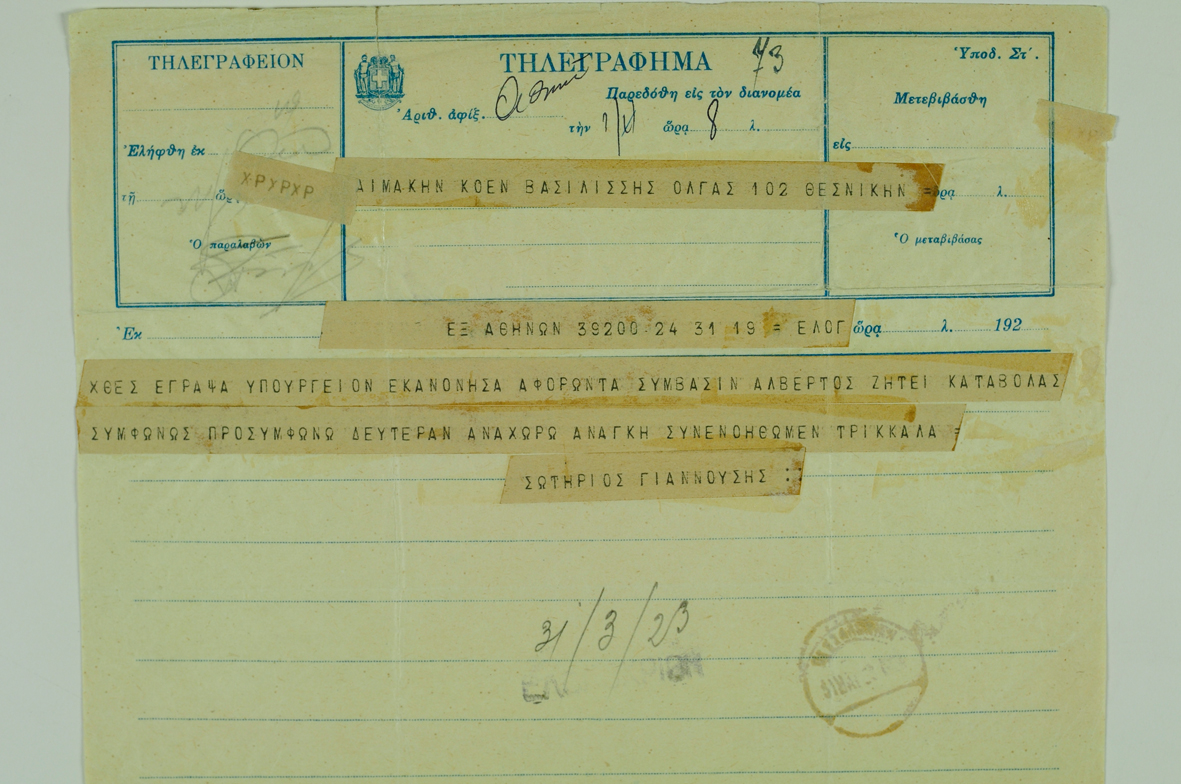 ΤΗΛΕΓΡΑΦΕΙΟΝ
ΤΗΛΕΓΡΑΦΗΜΑ
73
Ὑποδ. Στ'.
Ἀριθ. ἀφίξ.
Παρεδόθη εἰς τὸν διανομέα
Μετεβιβάσθη
τὴν ὥρᾳ 8 λ.
Ἐλήφθη ἐκ
εἰς
ΧΡΥΡΧΡ ΑΙΜΑΚΗΝ ΚΟΕΝ ΒΑΣΙΛΙΣΣΗΣ ΟΛΓΑΣ 102 ΘΕΣΝΙΚΗΝ =
τῇ ὥρᾳ λ.
Ὁ παραλαβὼν
Ὁ μεταβιβάσας
Ἐκ ΕΞ ΑΘΗΝΩΝ 39200 24 31 19 = ΕΛΟΓ ὥρᾳ λ. 192
ΧΘΕΣ ΕΓΡΑΨΑ ΥΠΟΥΡΓΕΙΟΝ ΕΚΑΝΟΝΗΣΑ ΑΦΟΡΩΝΤΑ ΣΥΜΒΑΣΙΝ ΑΛΒΕΡΤΟΣ ΖΗΤΕΙ ΚΑΤΑΒΟΛΑΣ
ΣΥΜΦΩΝΩΣ ΠΡΟΣΥΜΦΩΝΩ ΔΕΥΤΕΡΑΝ ΑΝΑΧΩΡΩ ΑΝΑΓΚΗ ΣΥΝΕΝΟΗΘΩΜΕΝ ΤΡΙΚΚΑΛΑ =
ΣΩΤΗΡΙΟΣ ΓΙΑΝΝΟΥΣΗΣ :
31/3/23